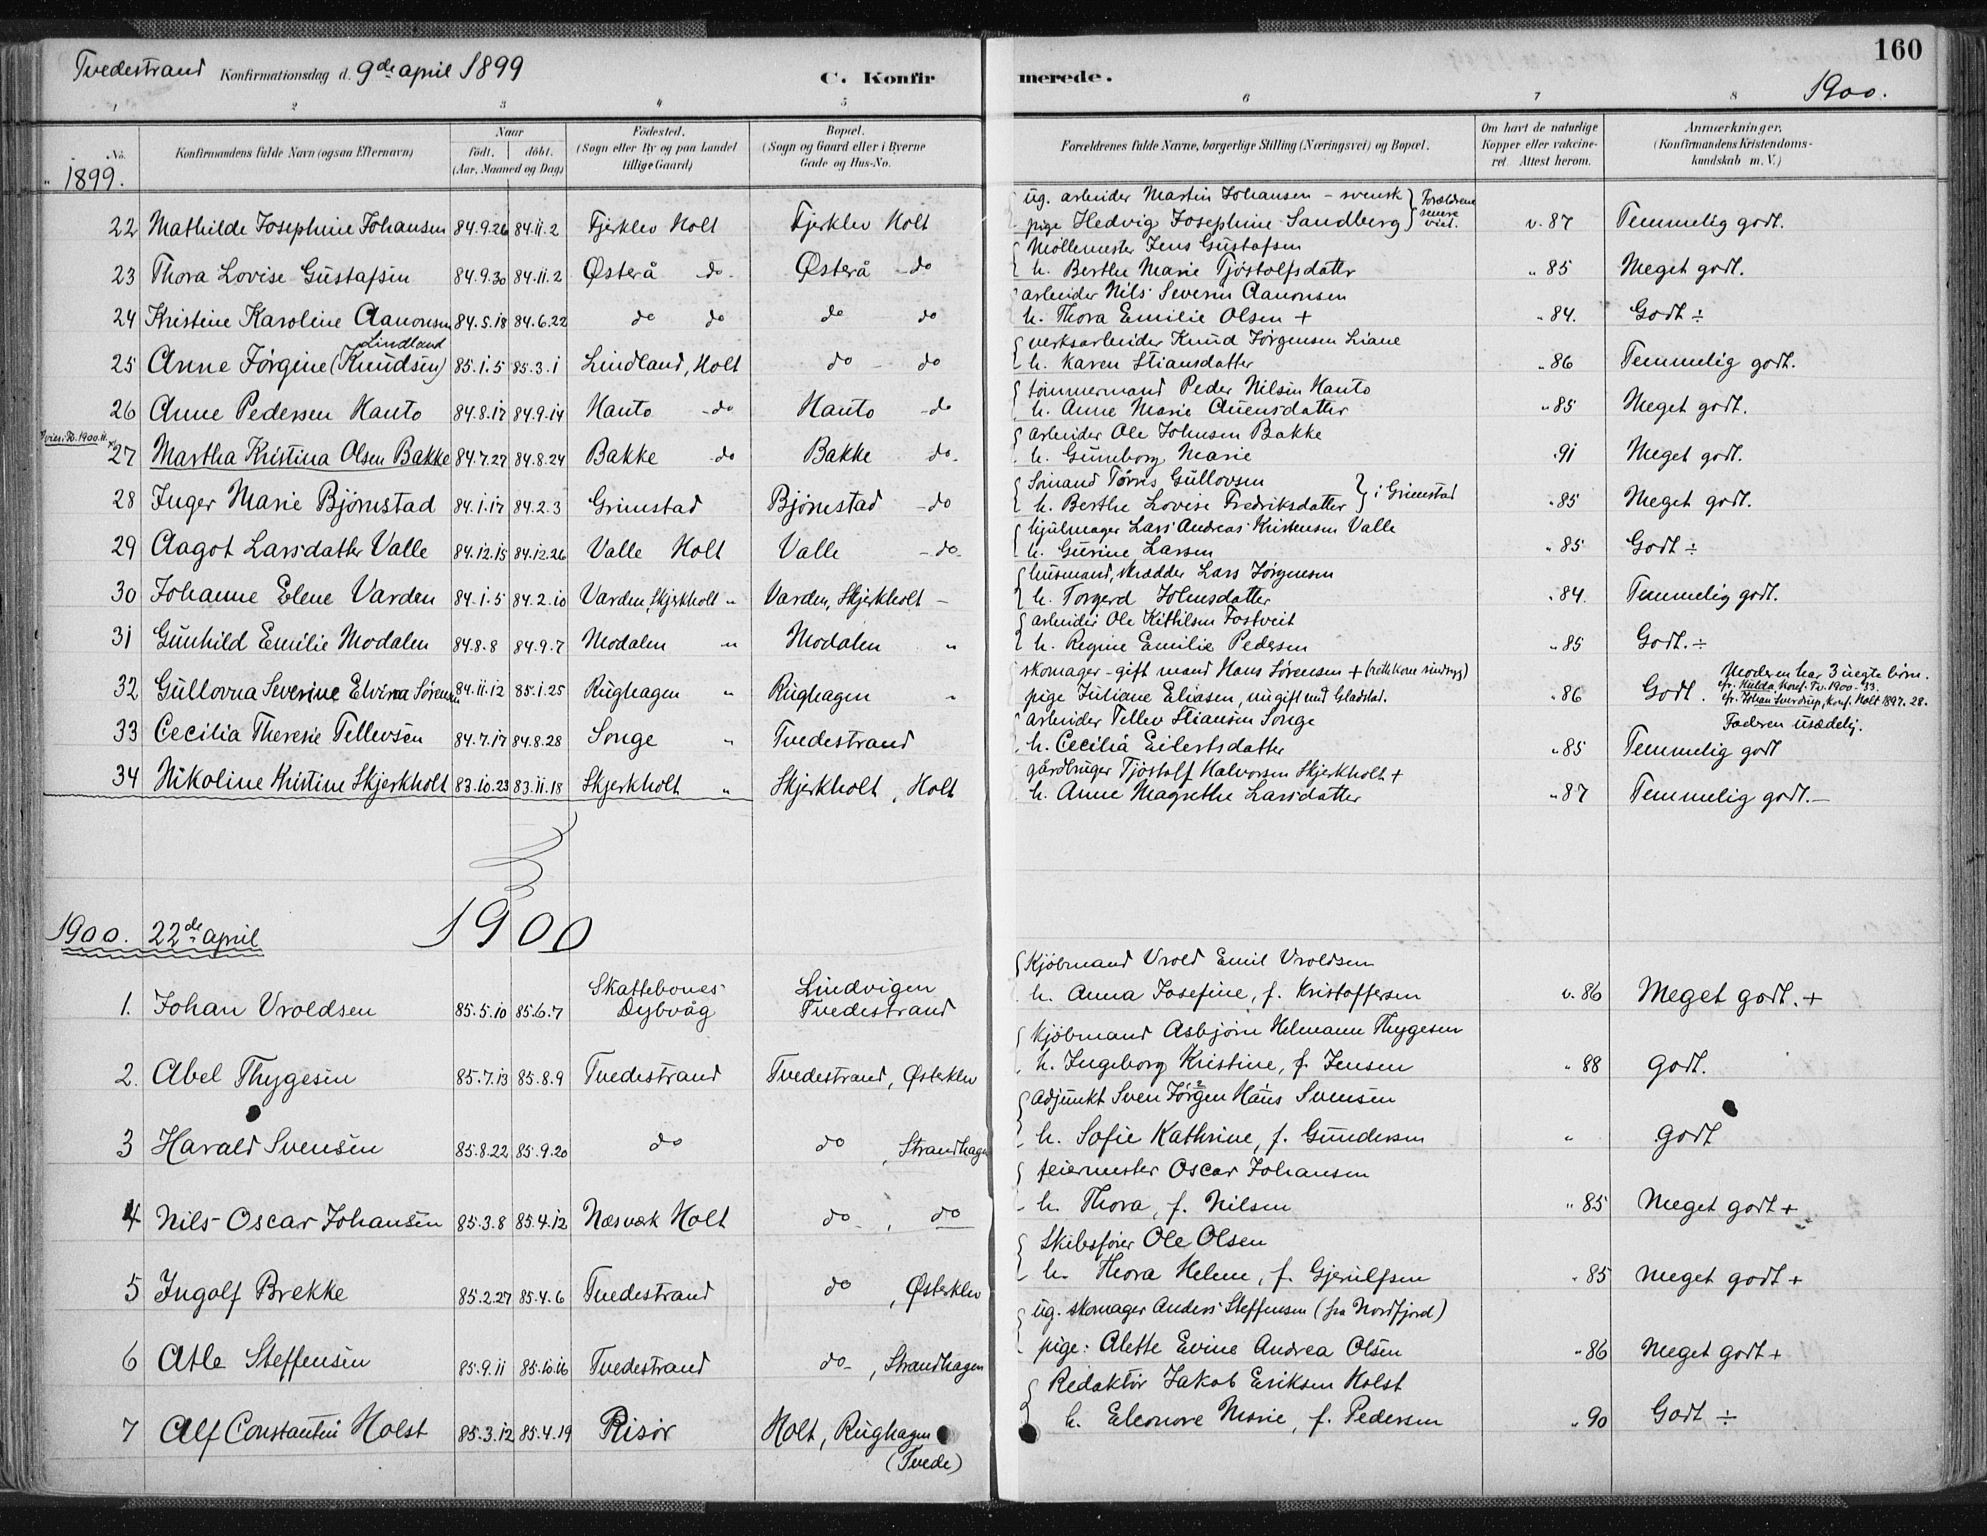 Tvedestrand Konfirmationsdag d. 9de april 1899 C. Konfirmerede. 160
1900.
1 2 3 4 5 6 7 8
No. Konfirmandens fulde Navn (ogsaa Efternavn) Naar födt. döbt. (Aar, Maaned og Dag) Födested. (Sogn eller By og paa Landet tillige Gaard) Bopæl. (Sogn og Gaard eller i Byerne Gade og Hus-No. Forældrenes fulde Navne, borgerlige Stilling (Næringsvei) og Bopæl. Om havt de naturlige Kopper eller vakcineret. Attest herom. Anmærkninger. (Konfirmandens Kristendomskundskab m. V.)
1899.
ug. arbeider Martin Johansen - svensk } Forældrene senere viet.
22 Mathilde Josephine Johansen 84.9.26 84.11.2 Fjerklev Holt Fjerklev Holt pige Hedvig Josephine Sandberg v. 87 Temmelig godt.
Møllemester Jens Gustafsen
23 Thora Lovise Gustafsen 84.9.30 84.11.2 Østerå do Østerå do h. Berthe Marie Tjøstolfsdatter " 85 Meget godt.
arbeider Nils Severin Aanonsen
24 Kristine Karoline Aanonsen 84.5.18 84.6.22 do do do do h. Thora Emilie Olsen + " 84. Godt ÷
Lindland verksarbeider Knud Jørgensen Liane
25 Anne Jørgine (Knudsen) 85.1.5 85.3.1 Lindland, Holt do - do h. Karen Stiansdatter " 86 Temmelig godt.
tømmermand Peder Nilsen Hanto
26 Anne Pedersen Hanto 84.8.17 84.9.14 Hanto do Hanto do h. Anne Marie Auensdatter " 85 Meget godt.
arbeider Ole Johnsen Bakke
27 Martha Kristina Olsen Bakke 84.7.27 84.8.24 Bakke do Bakke do. h. Gunnborg Marie 91 Meget godt.
Sømand Tørres Gullovsen
28 Inger Marie Bjørnstad 84.1.17 84.2.3 Grimstad Bjørnstad do h. Berthe Lovise Fredriksdatter } i Grimstad " 85 Meget godt.
hjulmager Lars Andreas Kristensen Valle
29 Aagot Larsdatter Valle 84.12.15 84.12.26 Valle Holt Valle do h. Gurine Larsen " 85 Godt ÷
husmand, skrædder Lars Jørgensen
30 Johanne Elene Varden 84.1.5 84.2.10 Varden, Skjerkholt " Varden, Skjerkholt - h. Torgerd Johnsdatter " 84. Temmelig godt.
arbeider Ole Kittilsen Fostveit
31 Gunhild Emilie Modalen 84.8.8 84.9.7 Modalen " Modalen " h. Regine Emilie Pedersen " 85 Godt. ÷
skomager - gift mand Hans Sørensen + Moderen har 3 uegte börn.
32 Gullovna Severine Elvina Sørensen 84.11.12 85.1.25 Rughagen " Rughagen " pige Juliane Eliasen, nu gift med Gladstad. " 86 Godt. cfr. Hulda, Konf. Tv. 1900-33.
cfr. Johan Sverdrup, Konf. Holt 1897. 28.
arbeider Tellev Stiansen Songe Faderen usædelig.
33 Cecilia Therese Tellevsen 84.7.17 84.8.28 Songe " Tvedestrand h. Cecilia Eilertsdatter " 85 Temmelig godt
gårdbruger Tjøstolf Halvorsen Skjerkholt +
34 Nikoline Kristine Skjerkholt 83.10.23 83.11.18 Skjerkholt " Skjerkholt, Holt h. Anne Magrethe Larsdatter " 87 Temmelig godt.-
1900. 22de april 1900
Kjøbmand Vrold Emil Vroldsen
1. Johan Vroldsen 85.5.10 85.6.7 Skattebones Dybvåg Lindvigen Tvedestrand h. Anna Josefine, f. Kristoffersen v. 86 Meget godt. +
Kjøbmand Asbjørn Helmann Thygesen
2. Abel Thygesen 85.7.13 85.8.9 Tvedestrand Tvedestrand, Østerklev h. Ingeborg Kristine, f. Jensen " 88 godt.
adjunkt Sven Jørgen Hans Svensen
3 Harald Svensen 85.8.22 85.9.20 do do, Strandhagen h. Sofie Kathrine, f. Gundersen " godt
feiermester Oscar Johansen
4 Nils Oscar Johansen 85.3.8 85.4.12 Næsvæk Holt do, do h. Thora, f. Nilsen " 85 Meget godt +
Skibsfører Ole Olsen
5 Ingolf Brekke 85.2.27 85.4.6 Tvedestrand do, Østerklev h. Thora Helene, f. Gjerulfsen " 85 Meget godt +
ug. skomager Anders Steffensen (fra Nordfjord)
6 Atle Steffensen 85.9.11 85.10.16 Tvedestrand do, Strandhagen pige: Alette Evine Andrea Olsen " 86 Meget godt +
Redaktør Jakob Eriksen Holst
7 Alf Constantin Holst 85.3.12 85.4.19 Risør Holt, Rughagen h. Eleonore Marie, f. Pedersen " 90 Godt ÷
(Tvede)